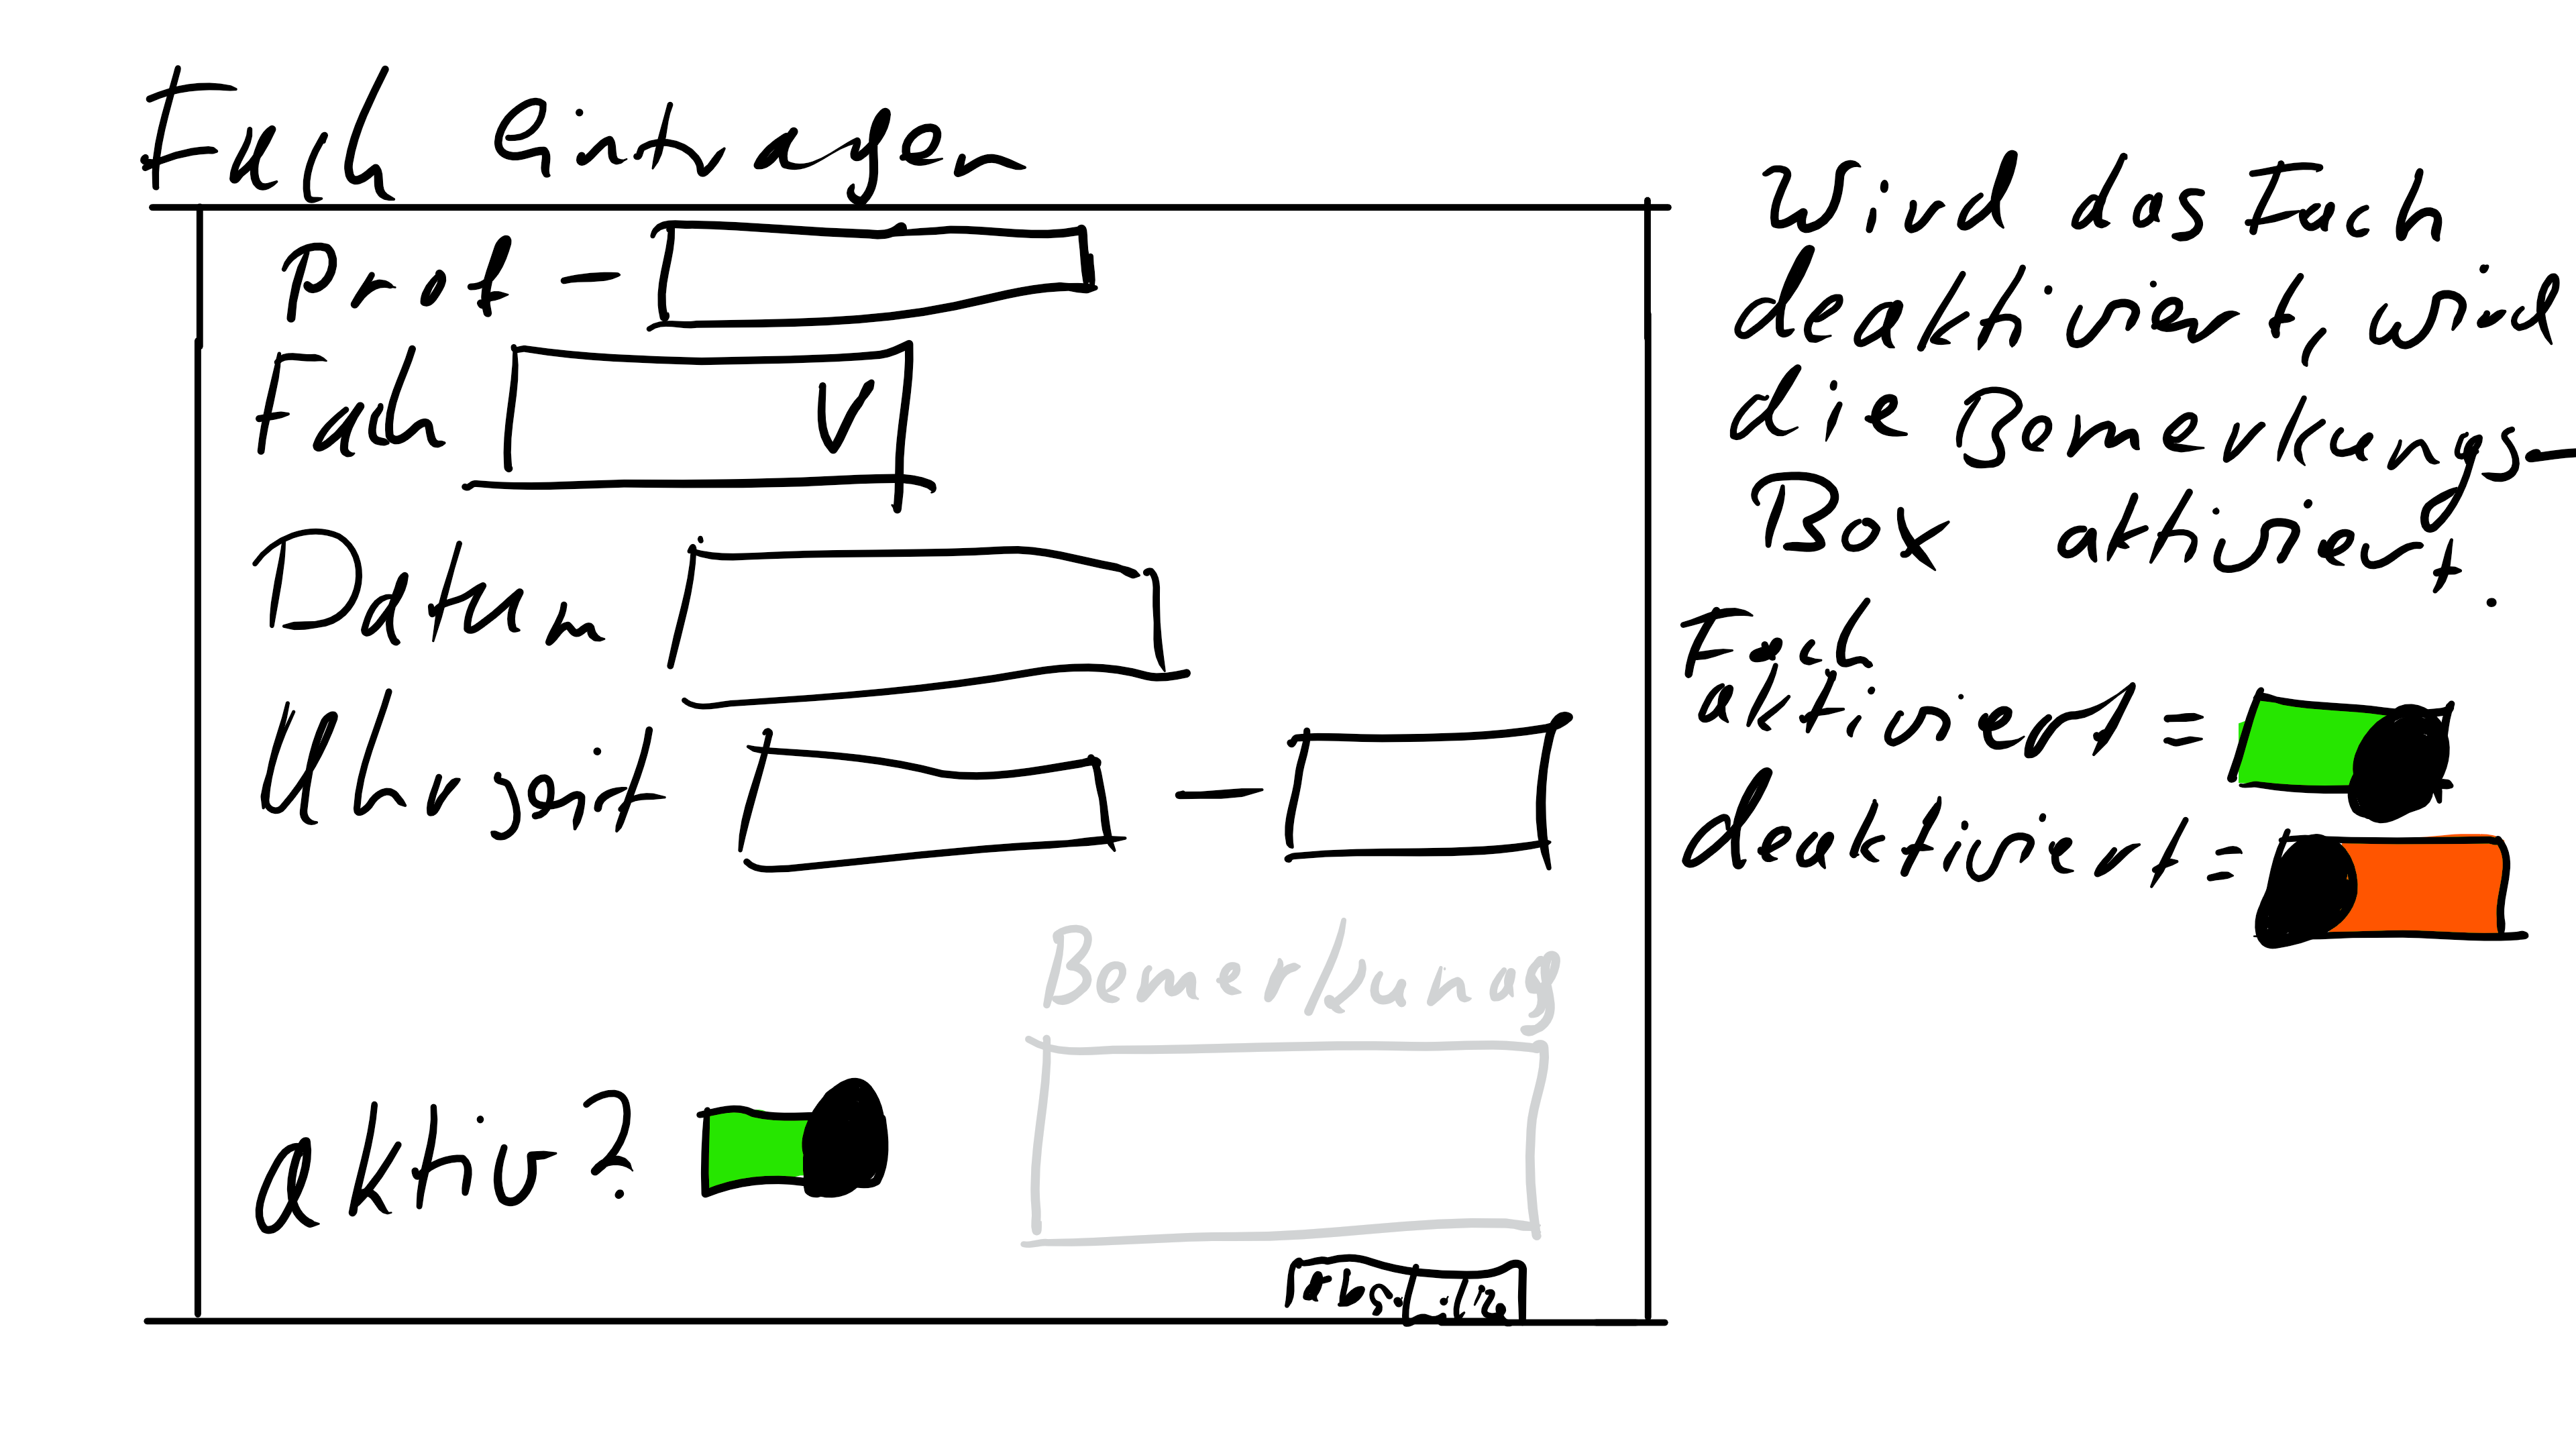 Fach Eintragen
Prof -
Fach
Datum
Uhrzeit -
Bemerkung
aktiv?
Wird das Fach
deaktiviert, wird
die Bemerkungs-
Box aktiviert.
Fach
aktiviert =
deaktiviert =